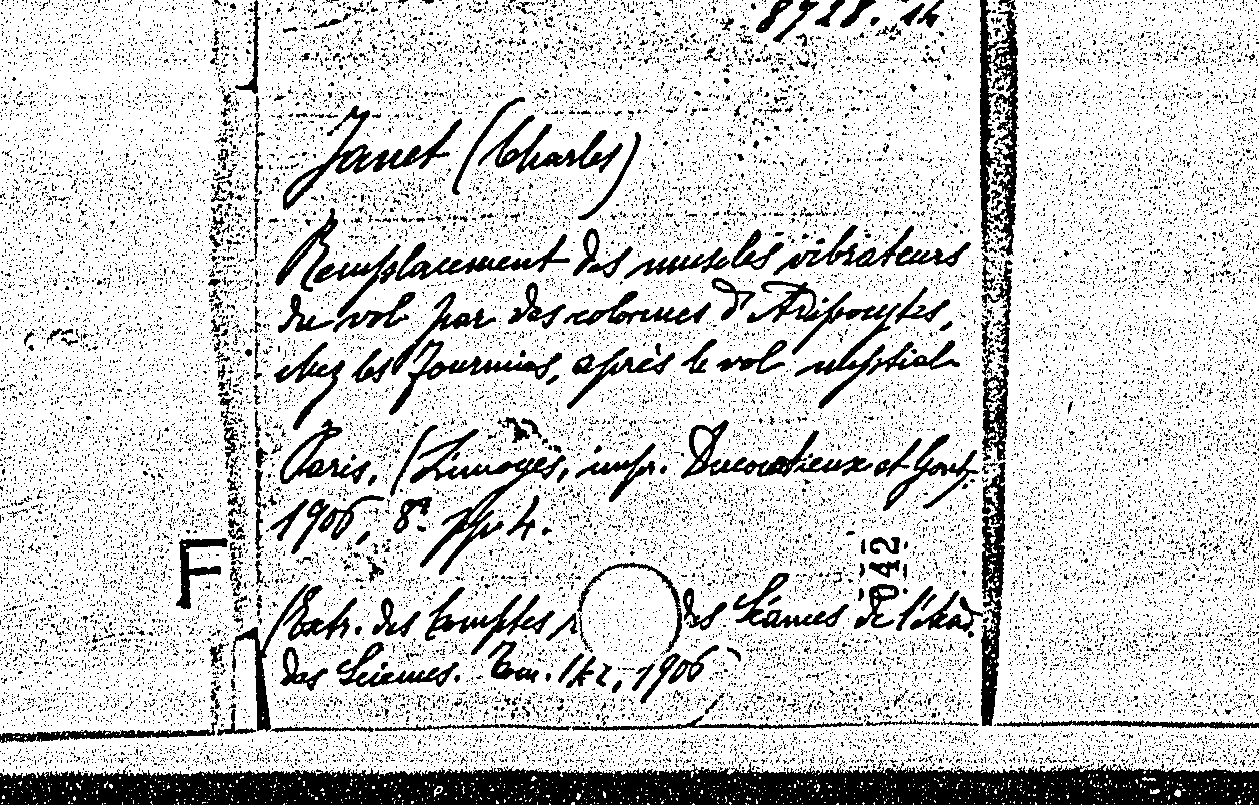 8728. 14
Janet (Charles)
Remplacement des muscles vibrateurs
du vol par des colonnes d'Adipocytes,
chez les Fourmies, après le vol nuptial
Paris, (Limoges, impr. Ducourtieux et Gout,
1906, 8º. pp 4.
F
042
(Extr. des Comptes des Séances de l'Acad.
des Sciences. Tom. 142, 1906)